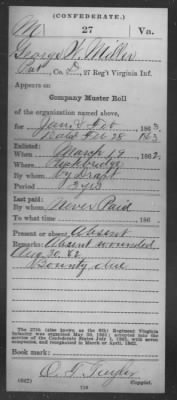 (CONFEDERATE.)
M 27 Va.
George W. Miller
Pvt Co. D, 27 Reg't Virginia Inf.
Appears on
Company Muster Roll
of the organization named above,
for Jan & Feb, 1863.
dated Feb 28 1863
Enlisted:
When March 19, 1862.
Where Rockbridge
By whom by Draft
Period 3 yrs
Last paid:
By whom Never Paid
To what time , 186 .
Present or absent Absent
Remarks: Absent wounded
Aug 30 62
Bounty due
The 27th (also known as the 6th) Regiment Virginia
Infantry was organized May 30, 1861; accepted into the
service of the Confederate States July 1, 1861, with seven
companies, and reorganized in
Book mark:
Copyist.